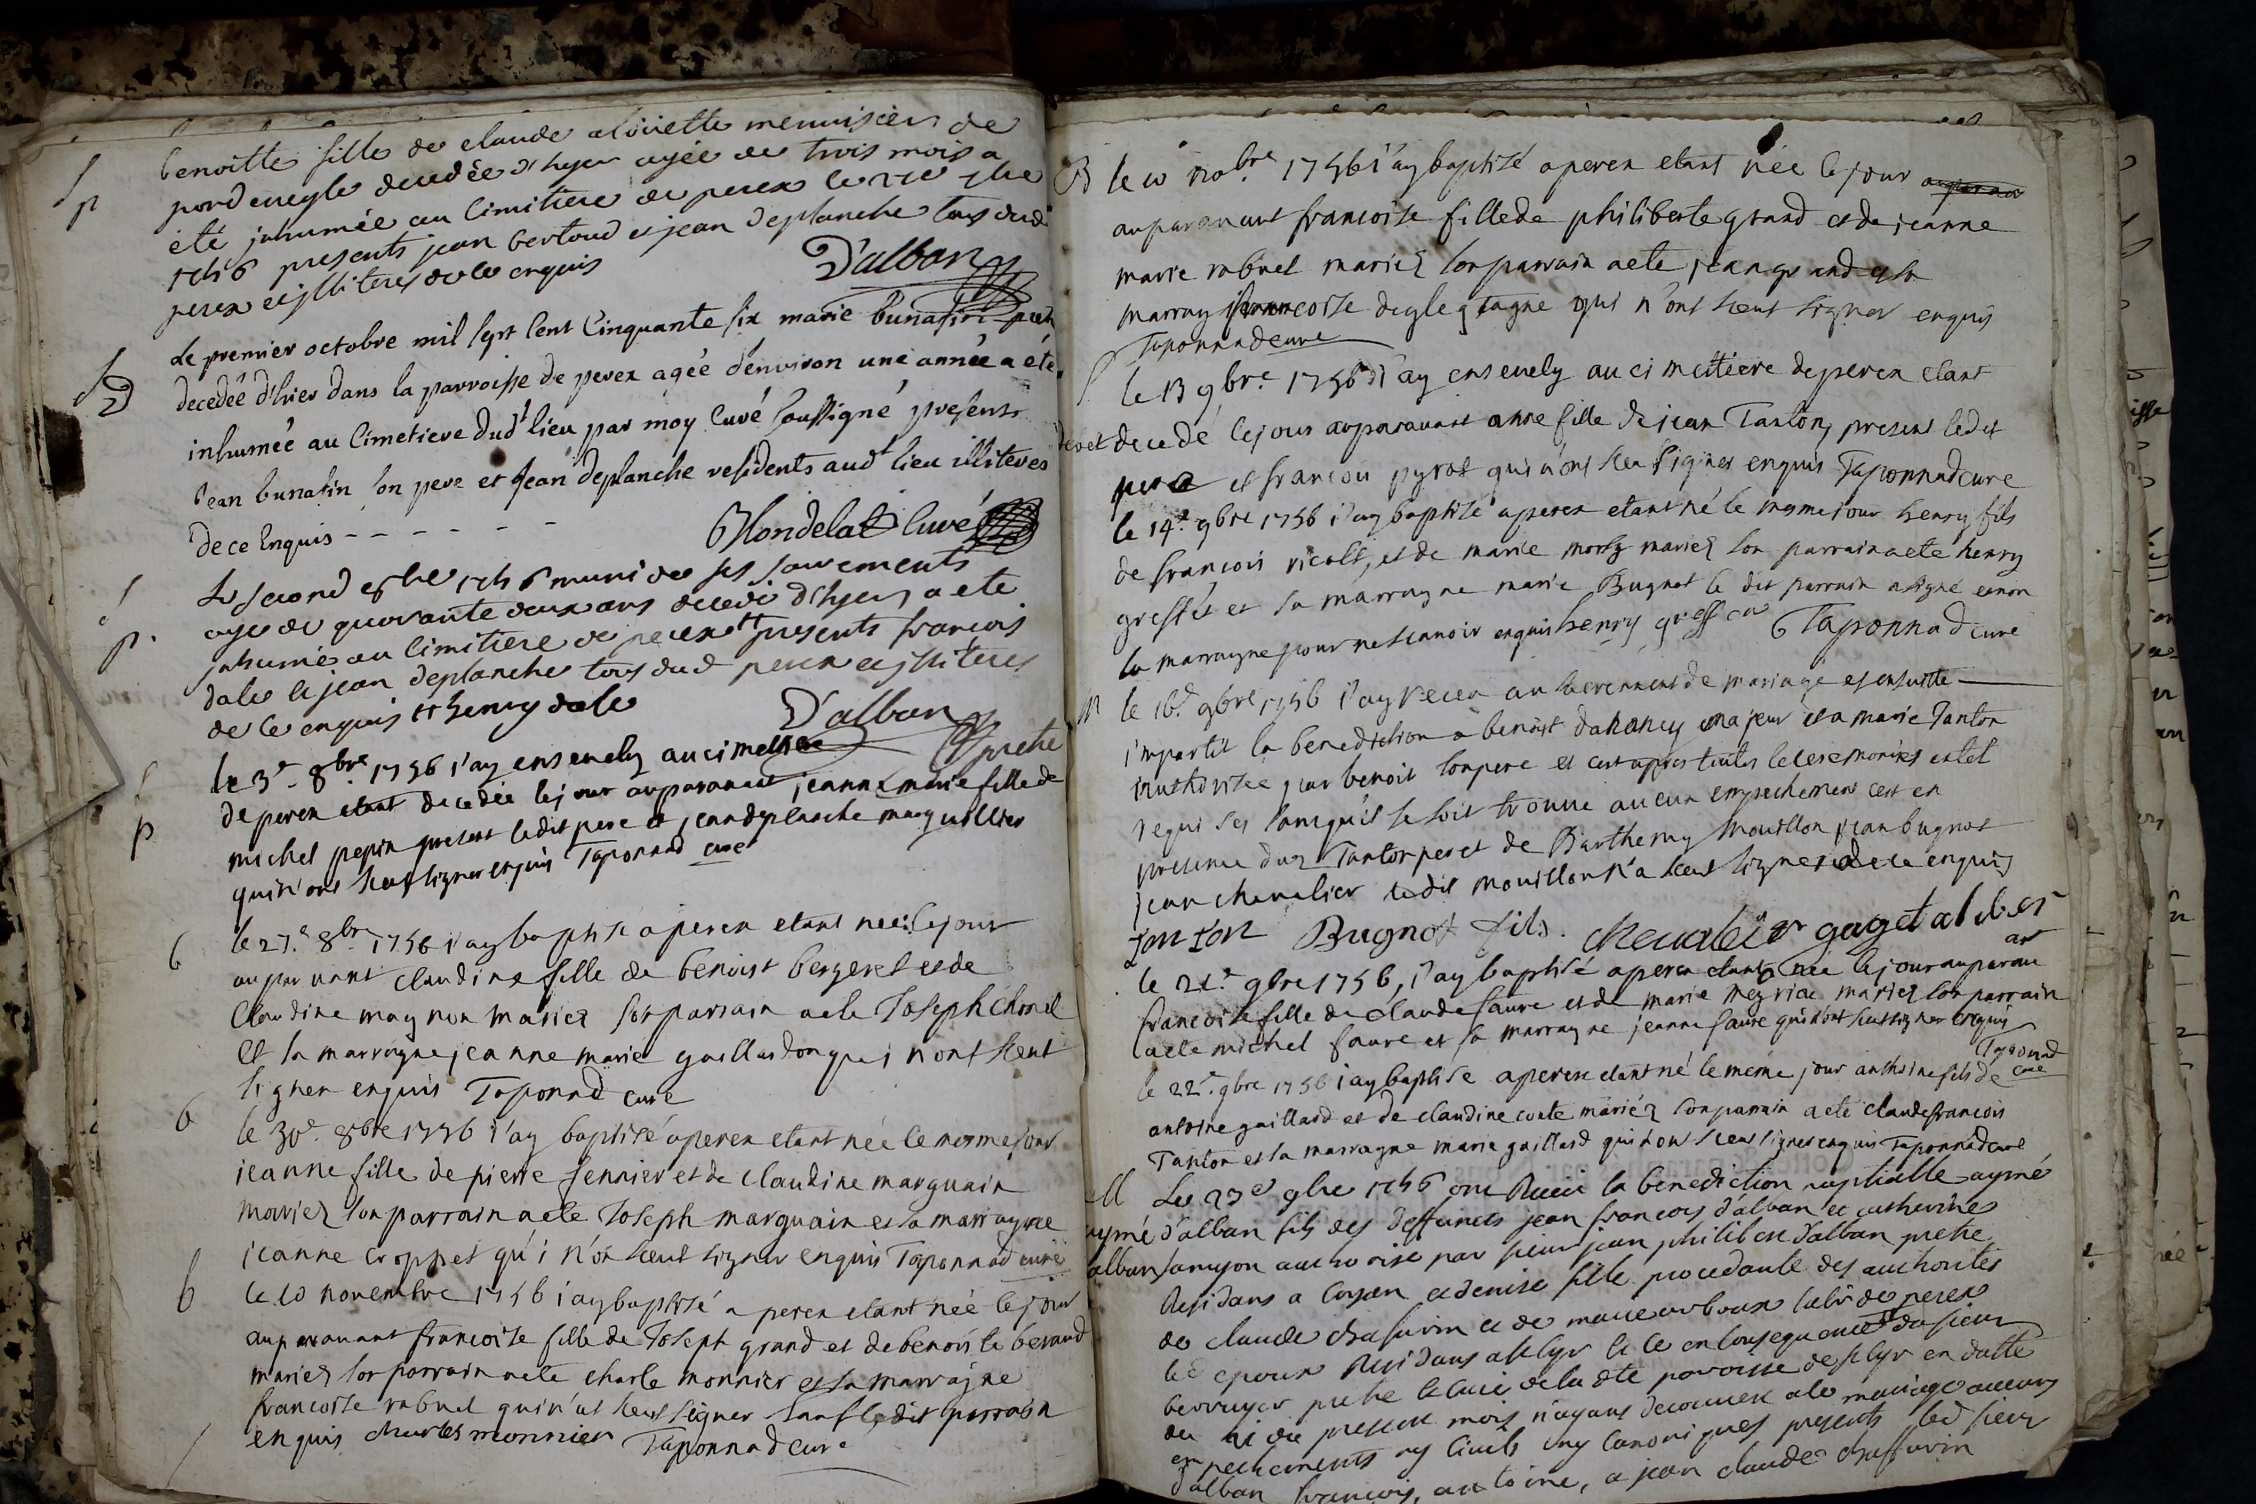 benoitte fille de claude alouette menuisier de
decedée d'hyer agée de trois mois a
été inhumée au cimitiere de perex le
1756 presents jean bertoud et jean deplanche tous dud
perex et illiteres de ce enquis
D'alban
Le premier octobre mil sept cent cinquante six marie bunatin
decedée d'hier dans la parroisse de perex agée d'environ une année a été
inhumée au cimetiere dud lieu par moy curé soussigné presents
jean bunatin son pere et jean deplanche residents aud lieu illiteres
de ce enquis - - - - - -
Blondelat curé
Le second 8bre 1756 muni de ses sacrements
agé de quarante deux ans decedé d'hyer a eté
inhumé au cimitiere de perex presents francois
dale et jean deplanche tous dud perex et illiteres
de ce enquis henry dale
D'alban
pretre
le 3e 8bre 1756 i'ay ensevely au cimetiere
de perex etant decedée le jour auparavant jeanne marie fille de
michel pepin present ledit pere et jean deplanche marguillier
qui n'ont sceut signer enquis Taponnad curé
b
le 27e 8bre 1756 i'ay baptisé a perex etant née le jour
auparavant claudine fille de benoist bergeret et de
claudine maynon mariez son parrain a eté Joseph chorel
et la marrayne jeanne marie gaillardon qui n'ont sceut
signer enquis Taponnad curé
b
le 30e 8bre 1756 i'ay baptisé a perex etant née le mesme jour
jeanne fille de pierre fennier et de claudine marguain
mariez son parrain a eté Joseph marguain et la marrayne
jeanne croppet qui n'ont sceut signer enquis Taponnad curé
b
le 10 novembre 1756 i'ay baptisé a perex etant née le jour
auparavant francoise fille de Joseph grand et de benoiste beraud
mariez son parrain a eté charle monnier et la marrayne
francoise rabuel qui n'at sceut signer sauf ledit parrain
enquis charles monnier Taponnad curé
B le 10 nobre 1756 i'ay baptisé a perex etant née le jour
auparavant francoise fille de philiberte grand et de jeanne
marie rabuel mariez son parrain a eté jean grand et sa
marray francoise qui n'ont sceut signer enquis
Taponnad curé
le 13 9bre 1756 i'ay ensevely au cimettiere de perex etant
decedé le jour auparavant anne fille de jean Tanton, present ledit
pere et francois pyrot qui n'ont sceu signer enquis Taponnad curé
le 14e 9bre 1756 i'ay baptisé a perex etant né le mesme jour henry fils
de francois ricol et de marie mariez son parrain a eté henry
et sa marrayne marie Bugnot le dit parrain a signé et non
la marrayne pour ne scavoir enquis henry Taponnad curé
m le 16e 9bre 1756 i'ay receu au sacrement de mariage et ensuitte
impartit la benediction a benoist danancy majeur et a marie Tanton
authorisée par benoit son pere et ce apres toutes le ceremonies en tel
requises sans qu'il se soit trouvé aucun empechement cest en
presence dud Tanton pere et de Barthemy mouillon jean bugnot
jean chevalier ledit mouillon n'a sceut signer de ce enquis
tonton Bugnot fils. chevalier
le 21e 9bre 1756, i'ay baptisé a perex etant née le jour auparavant
francoise fille de claude faure et de marie meyriae mariez son parrain
a eté michel faure et sa marrayne jeanne faure qui n'ont sceut signer enquis
Taponnad curé
le 22e 9bre 1756 i'ay baptisé a perex etant né le méme jour anthoine fils de
antoine gaillard et de claudine coute mariéz son parrain a eté claude francois
Tanton et la marrayne marie gaillard qui n'ont sceu signer enquis Taponnad curé
M Le 23e 9bre 1756 ont Receu la benediction nuptialle aymé
aymé d'alban fils des deffuncts jean francois d'alban et catherine
alban authorisé par sieur jean philibert d'alban pretre
Residans a et denise fille procedante des authorités
de claude chassurin et de marie de perex
époux Residans a et ce en consequence du sieur
pretre et curé de la dte paroisse de en datte
du present mois n'ayans decouvert a le mariage aucuns
empechements ny civils ny canoniques presents led sieur
d'alban francois, antoine, a jean claude chassurin